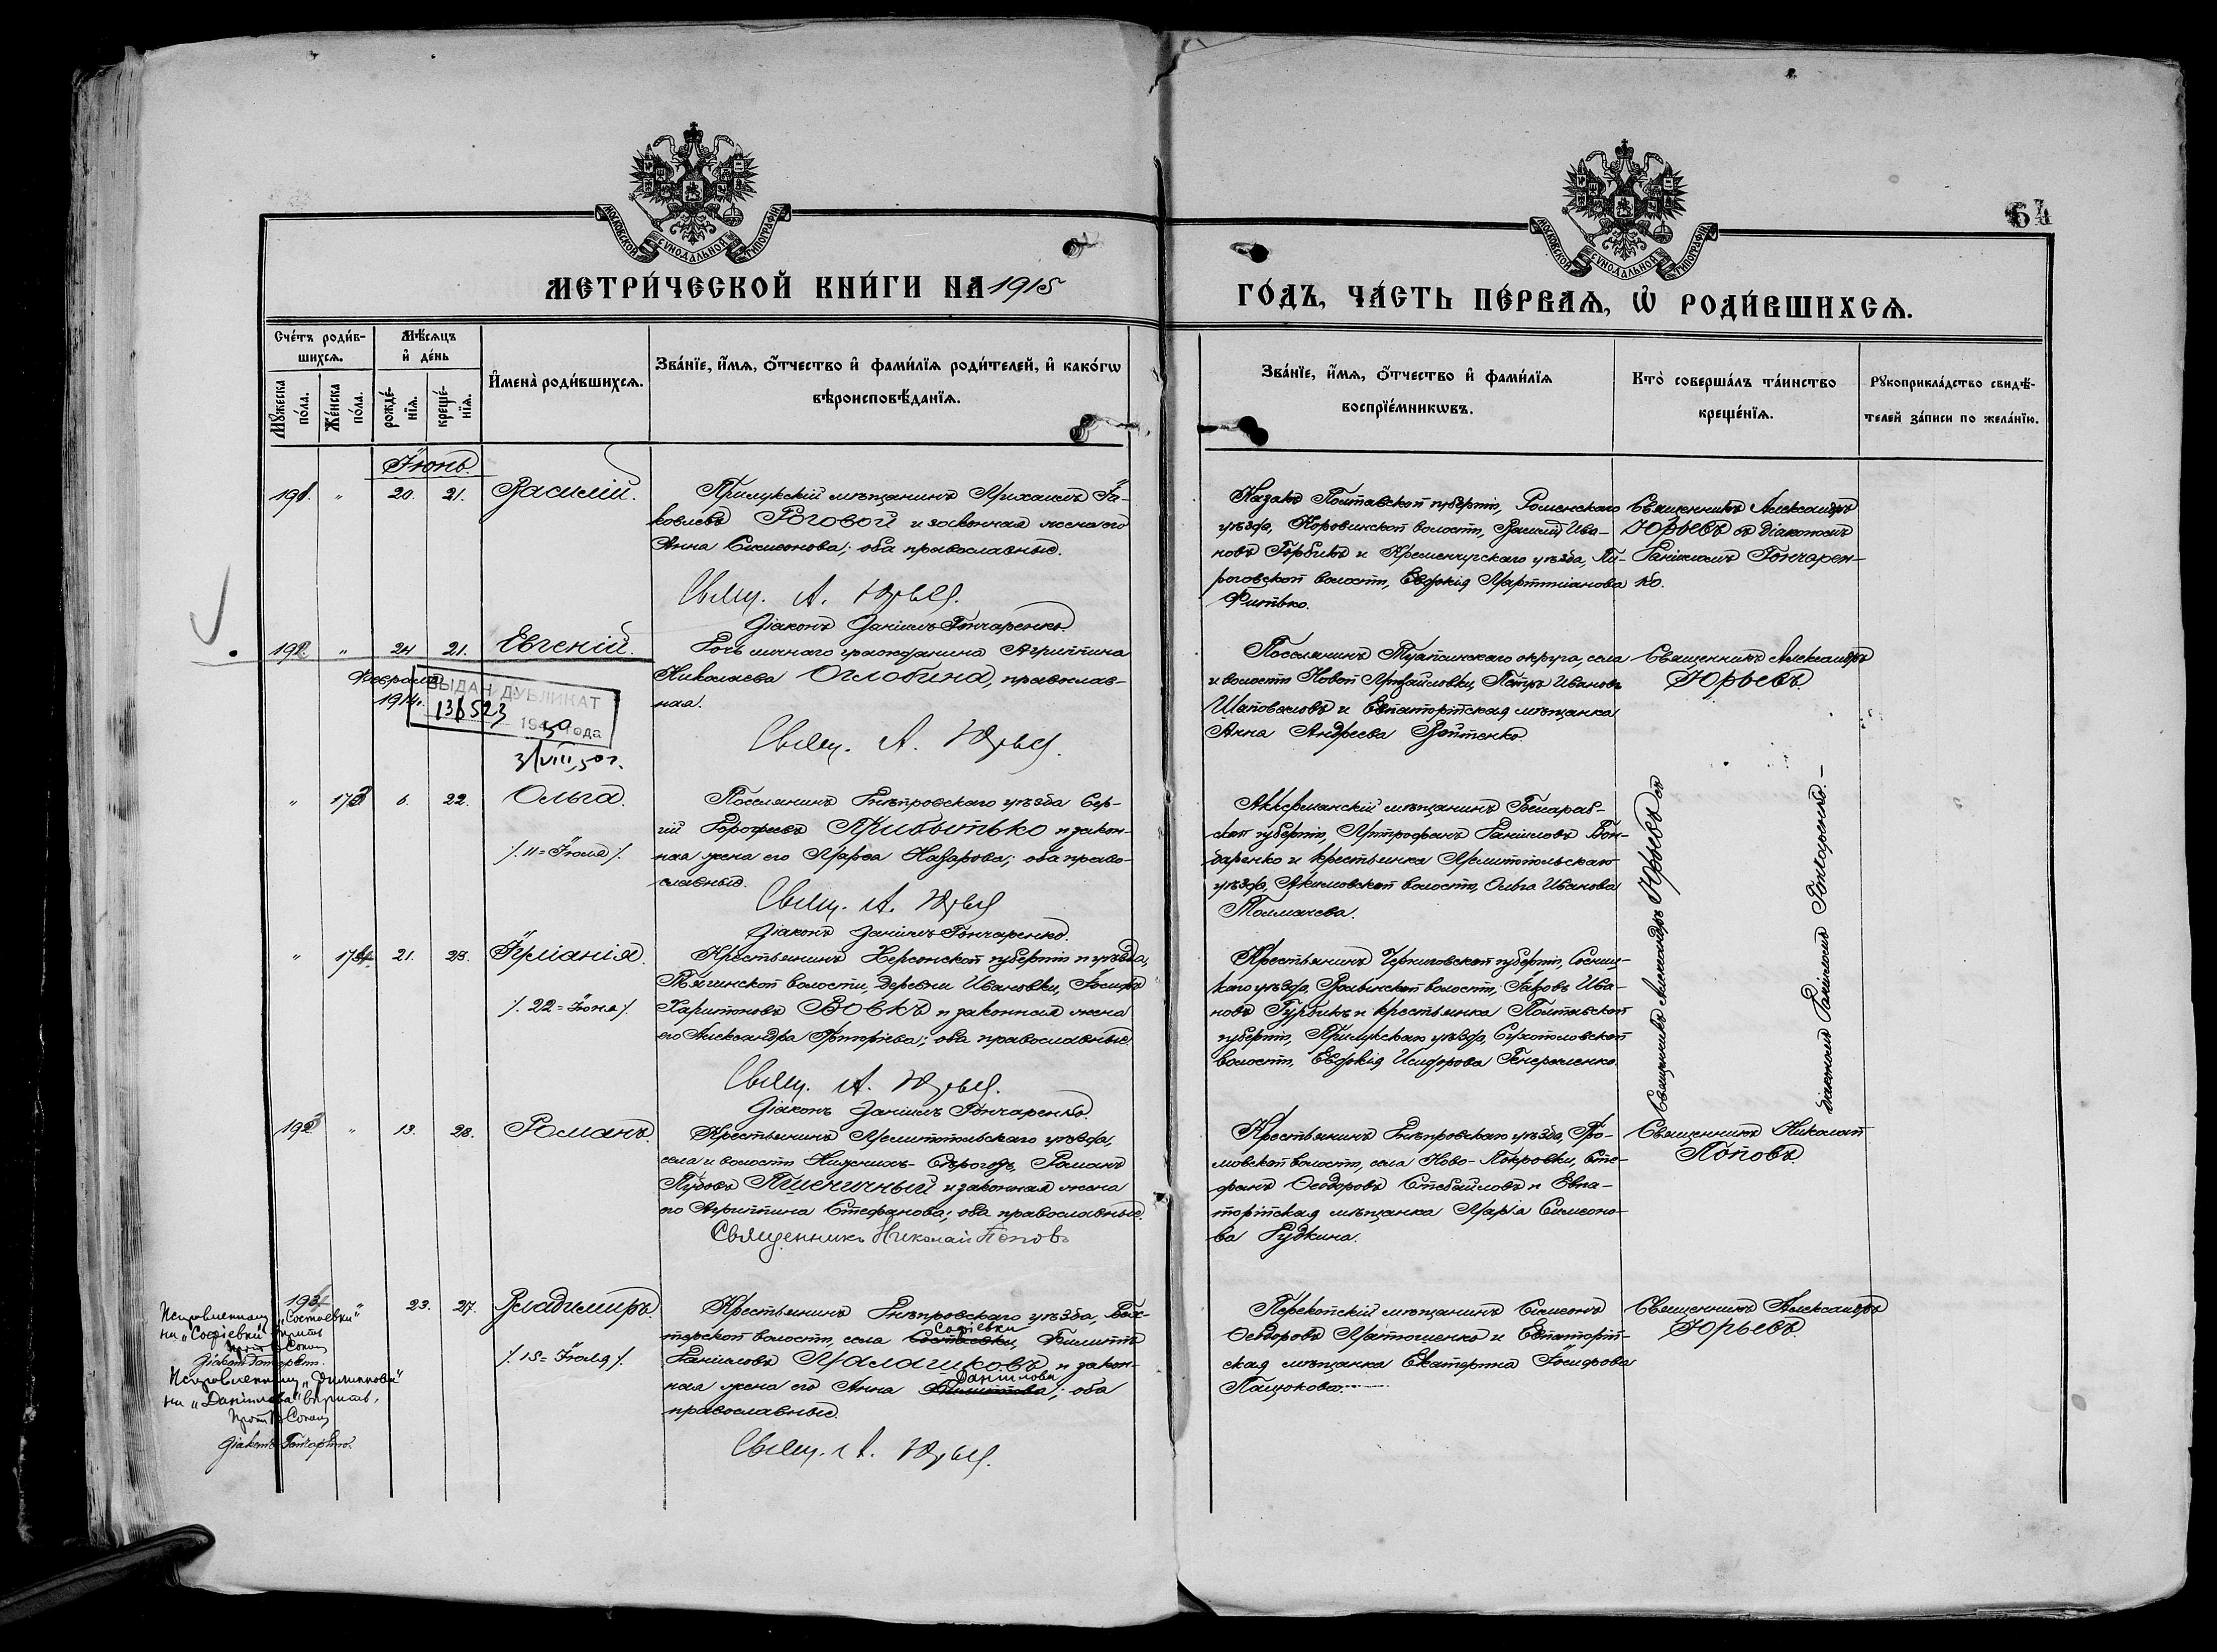 64
МОСКОВСКОЙ СѴНОДАЛЬНОЙ ТИПОГРАФІИ
МОСКОВСКОЙ СѴНОДАЛЬНОЙ ТИПОГРАФІИ
МЕТРИ́ЧЕСКОЙ КНИ́ГИ НА 1915
ГО́ДЪ, ЧА́СТЬ ПЕ́РВАѦ, Ѡ҆ РОДИ́ВШИХСѦ.
Сче́тъ роди́в-
шихсѧ.
Мꙋ́жеска по́ла.
Же́нска по́ла.
Мѣ́сѧцъ
и҆ де́нь
рожде́-
нїѧ.
креще́-
нїѧ.
И҆мена̀ роди́вшихсѧ.
Зва́нїе, и҆́мѧ, ѻ҆́тчество и҆ фами́лїѧ роди́телей, и҆ како́гѡ
вѣроисповѣ́данїѧ.
Зва́нїе, и҆́мѧ, ѻ҆́тчество и҆ фами́лїѧ
воспрїе́мникѡвъ.
Кто̀ соверша́лъ та́инство
креще́нїѧ.
Рꙋкоприкла́дство свидѣ́-
телей за́писи по жела́нїю.
Іюнь.
191. " 20. 21. Василій.
Прилукскій мѣщанинъ Михаилъ Іа-
ковлевъ Роговой и законная жена его
Анна Симеонова; оба православные.
Свящ. А. Юрьев.
Діаконъ Даніилъ Гончаренко.
Казакъ Полтавской губерніи, Роменскаго
уѣзда, Коровинской волости, Василій Ива-
новъ Горбикъ и Кременчугскаго уѣзда, Пи-
роговской волости, Евфкія Мартиніанова
Фитько.
Священникъ Александръ
Юрьевъ съ діакономъ
Даніиломъ Гончарен-
ко.
192. " 24 21. Евгеній.
Февраля
1914г.
ВЫДАН ДУБЛИКАТ
136523
1950 года
31/VIII, 50 г.
Дочь личнаго гражданина Агриппина
Николаева Оглобина, православ-
ная.
Свящ. А. Юрьев.
Поселянинъ Туапсинскаго округа, села
и волости Новой Михайловки, Петръ Ивановъ
Шаповаловъ и Евпаторійская мѣщанка
Анна Андреева Войтенко.
Священникъ Александръ
Юрьевъ.
" 173 6. 22. Ольга.
/. 11 = Іюля /.
Поселянинъ Днѣпровскаго уѣзда Сер-
гій Дорофеевъ Прибытько и закон-
ная жена его Марѳа Назарова; оба право-
славные.
Свящ. А. Юрьев
Діаконъ Даніилъ Гончаренко.
Аккерманскій мѣщанинъ Бессараб-
ской губерніи, Митрофанъ Даніиловъ Бон-
даренко и крестьянка Мелитопольскаго
уѣзда, Акимовской волости, Ольга Иванова
Толмачева.
Священникъ Александръ Юрьевъ съ
діакономъ Даніиломъ Гончаренко.—
" 174. 21. 28. Іуліанія.
/. 22 = Іюня /.
Крестьянинъ Херсонской губерніи и уѣзда,
Тягинской волости, деревни Ивановки, Іосифъ
Харитоновъ Вовкъ и законная жена
его Александра Григоріева; оба православные.
Свящ. А. Юрьев.
Діаконъ Даніилъ Гончаренко.
Крестьянинъ Черниговской губерніи, Сосниц-
каго уѣзда, Волынской волости, Іаковъ Ива-
новъ Гурбикъ и крестьянка Полтавской
губерніи, Прилукскаго уѣзда, Сухополовской
волости, Евфкія Исидорова Генераленко.
193. " 13. 28. Романъ.
Крестьянинъ Мелитопольскаго уѣзда,
села и волости Нижнихъ-Сѣрогозъ, Романъ
Пудовъ Пшеничный и законная жена
его Агриппина Стефанова; оба православные.
Священникъ Николай Поповъ
Крестьянинъ Днѣпровскаго уѣзда, Гро-
мовской волости, села Ново-Покровки, Сте-
фанъ Ѳеодоровъ Стебайловъ и Евпа-
торійская мѣщанка Марія Симеоно-
ва Гудкина.
Священникъ Николай
Поповъ.
194 " 23. 27. Владимиръ.
/. 15 = Іюля /.
Крестьянинъ Днѣпровскаго уѣзда,
волости, села Софіевки,
Даніиловъ Малашковъ и закон-
ная жена его Анна Даніилова; оба
православные.
Свящ. А. Юрьев.
Перекопскій мѣщанинъ Симеонъ
Ѳеодоровъ Матюшенко и Евпаторій-
ская мѣщанка Екатерина Іосифова
Пацюкова.
Священникъ Александръ
Юрьевъ.
Исправленному
на „Софіевки" вѣрить
Исправленному
на „Даніилова" вѣрить.